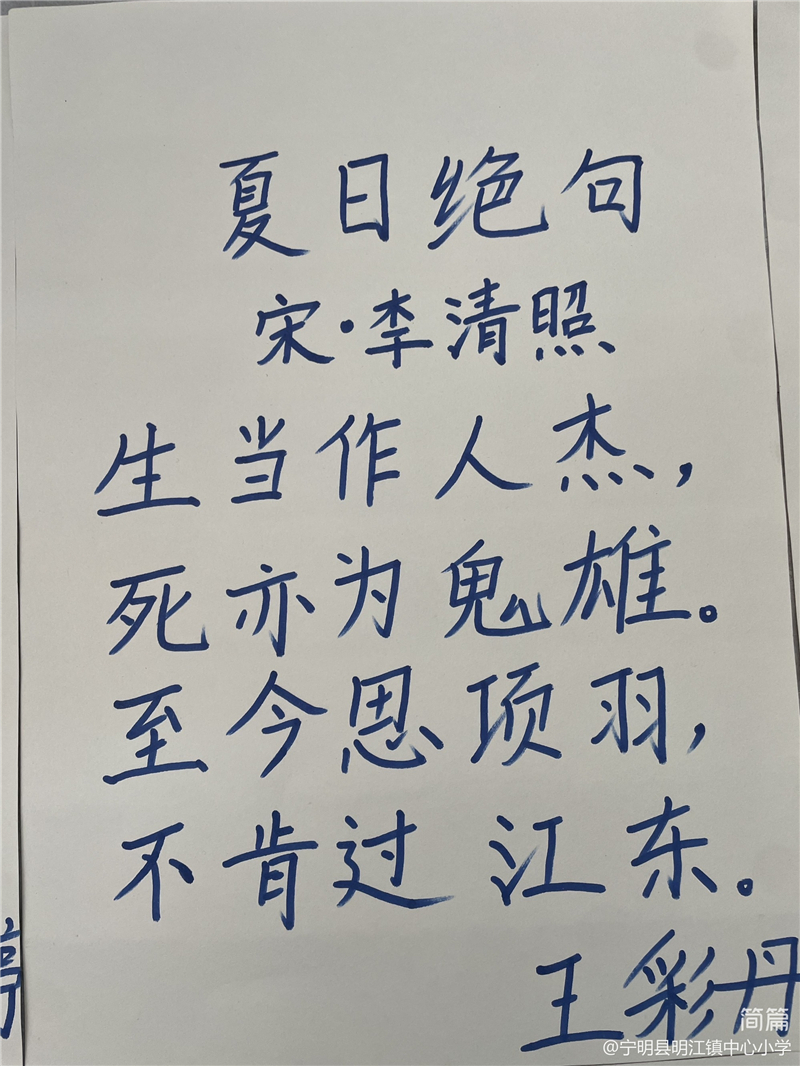 夏日绝句
宋·李清照
生当作人杰，
死亦为鬼雄。
至今思项羽，
不肯过江东。
王彩丹
简篇
@宁明县明江镇中心小学